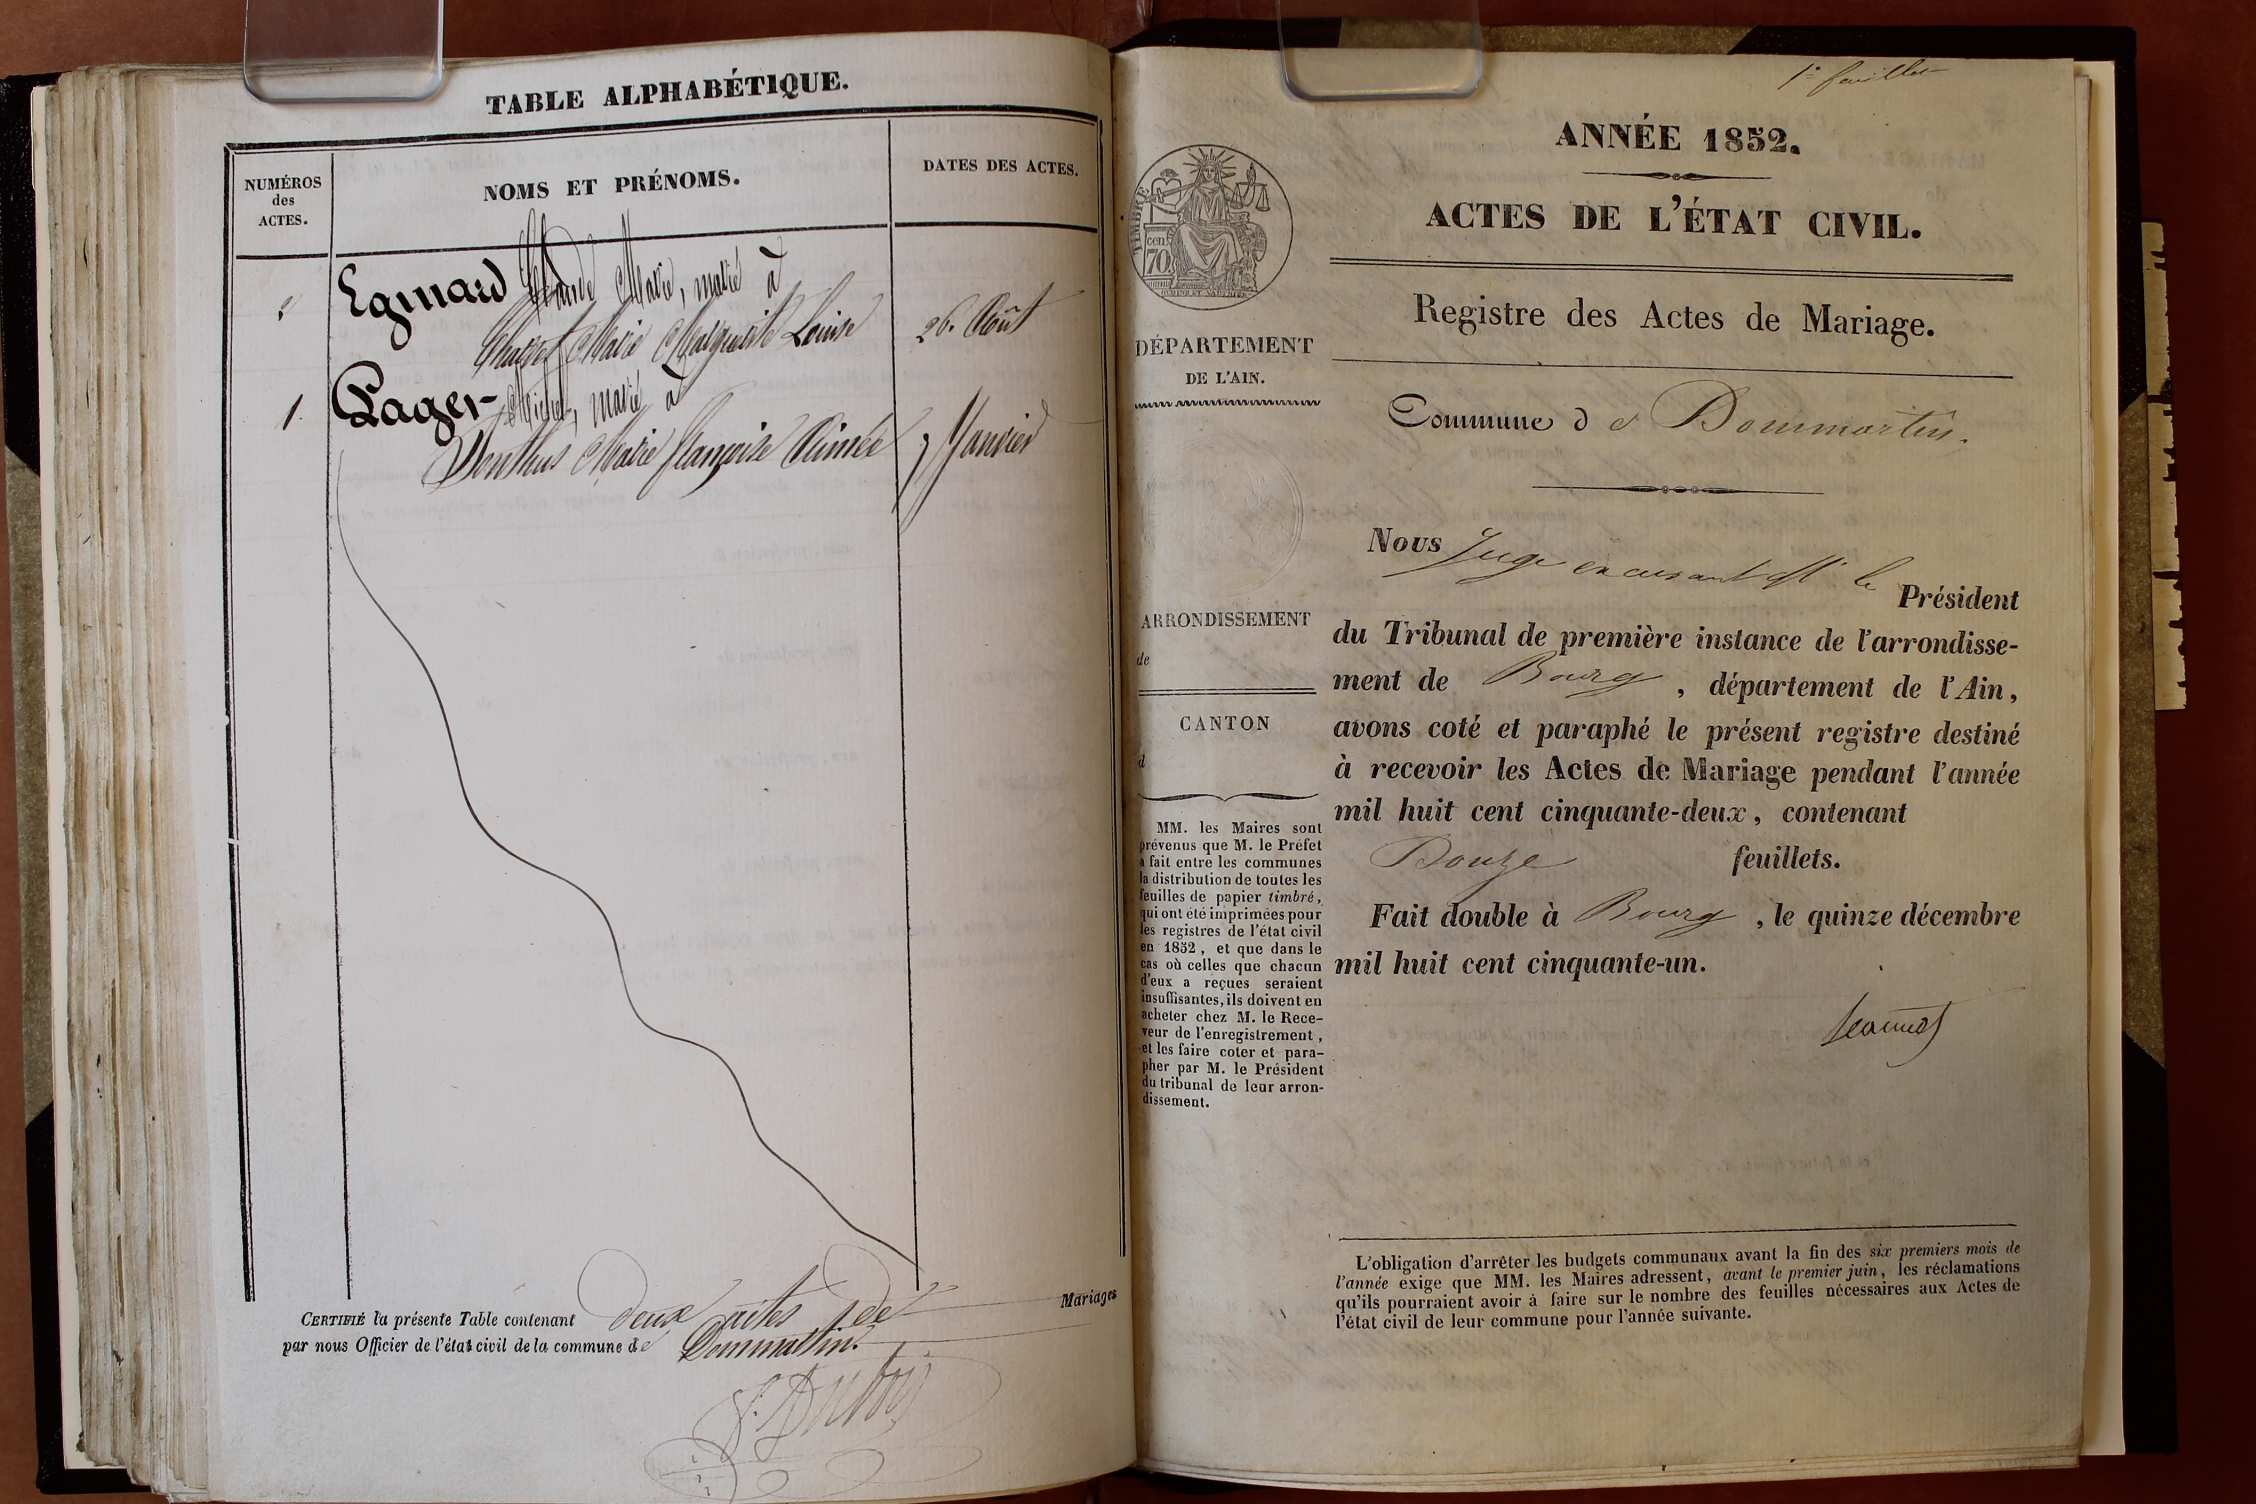 TABLE ALPHABÉTIQUE.
NUMÉROS
des
ACTES.
NOMS ET PRÉNOMS.
DATES DES ACTES.
2
Marie, marié à
Marie Marguerite Louise
26. Août
1.
Michel, marié à
Marie Françoise Aimée
7 Janvier
CERTIFIÉ la présente Table contenant deux actes de Mariages
par nous Officier de l'état civil de la commune de Dommartin.
Dubois
1er feuillet
ANNÉE 1852.
ACTES DE L'ÉTAT CIVIL.
Registre des Actes de Mariage.
Commune d e Dommartin.
TIMBRE
cen.
70
DÉPARTEMENT
DE L'AIN.
ARRONDISSEMENT
de
CANTON
d
MM. les Maires sont
prévenus que M. le Préfet
a fait entre les communes
la distribution de toutes les
feuilles de papier timbré,
qui ont été imprimées pour
les registres de l'état civil
en 1852, et que dans le
cas où celles que chacun
d'eux a reçues seraient
insuffisantes, ils doivent en
acheter chez M. le Rece-
veur de l'enregistrement,
et les faire coter et para-
pher par M. le Président
du tribunal de leur arron-
dissement.
Nous Juge en cusant Mr le
Président
du Tribunal de première instance de l'arrondisse-
ment de Bourg, département de l'Ain,
avons coté et paraphé le présent registre destiné
à recevoir les Actes de Mariage pendant l'année
mil huit cent cinquante-deux, contenant
Douze feuillets.
Fait double à Bourg, le quinze décembre
mil huit cent cinquante-un.
L'obligation d'arrêter les budgets communaux avant la fin des six premiers mois de
l'année exige que MM. les Maires adressent, avant le premier juin, les réclamations
qu'ils pourraient avoir à faire sur le nombre des feuilles nécessaires aux Actes de
l'état civil de leur commune pour l'année suivante.